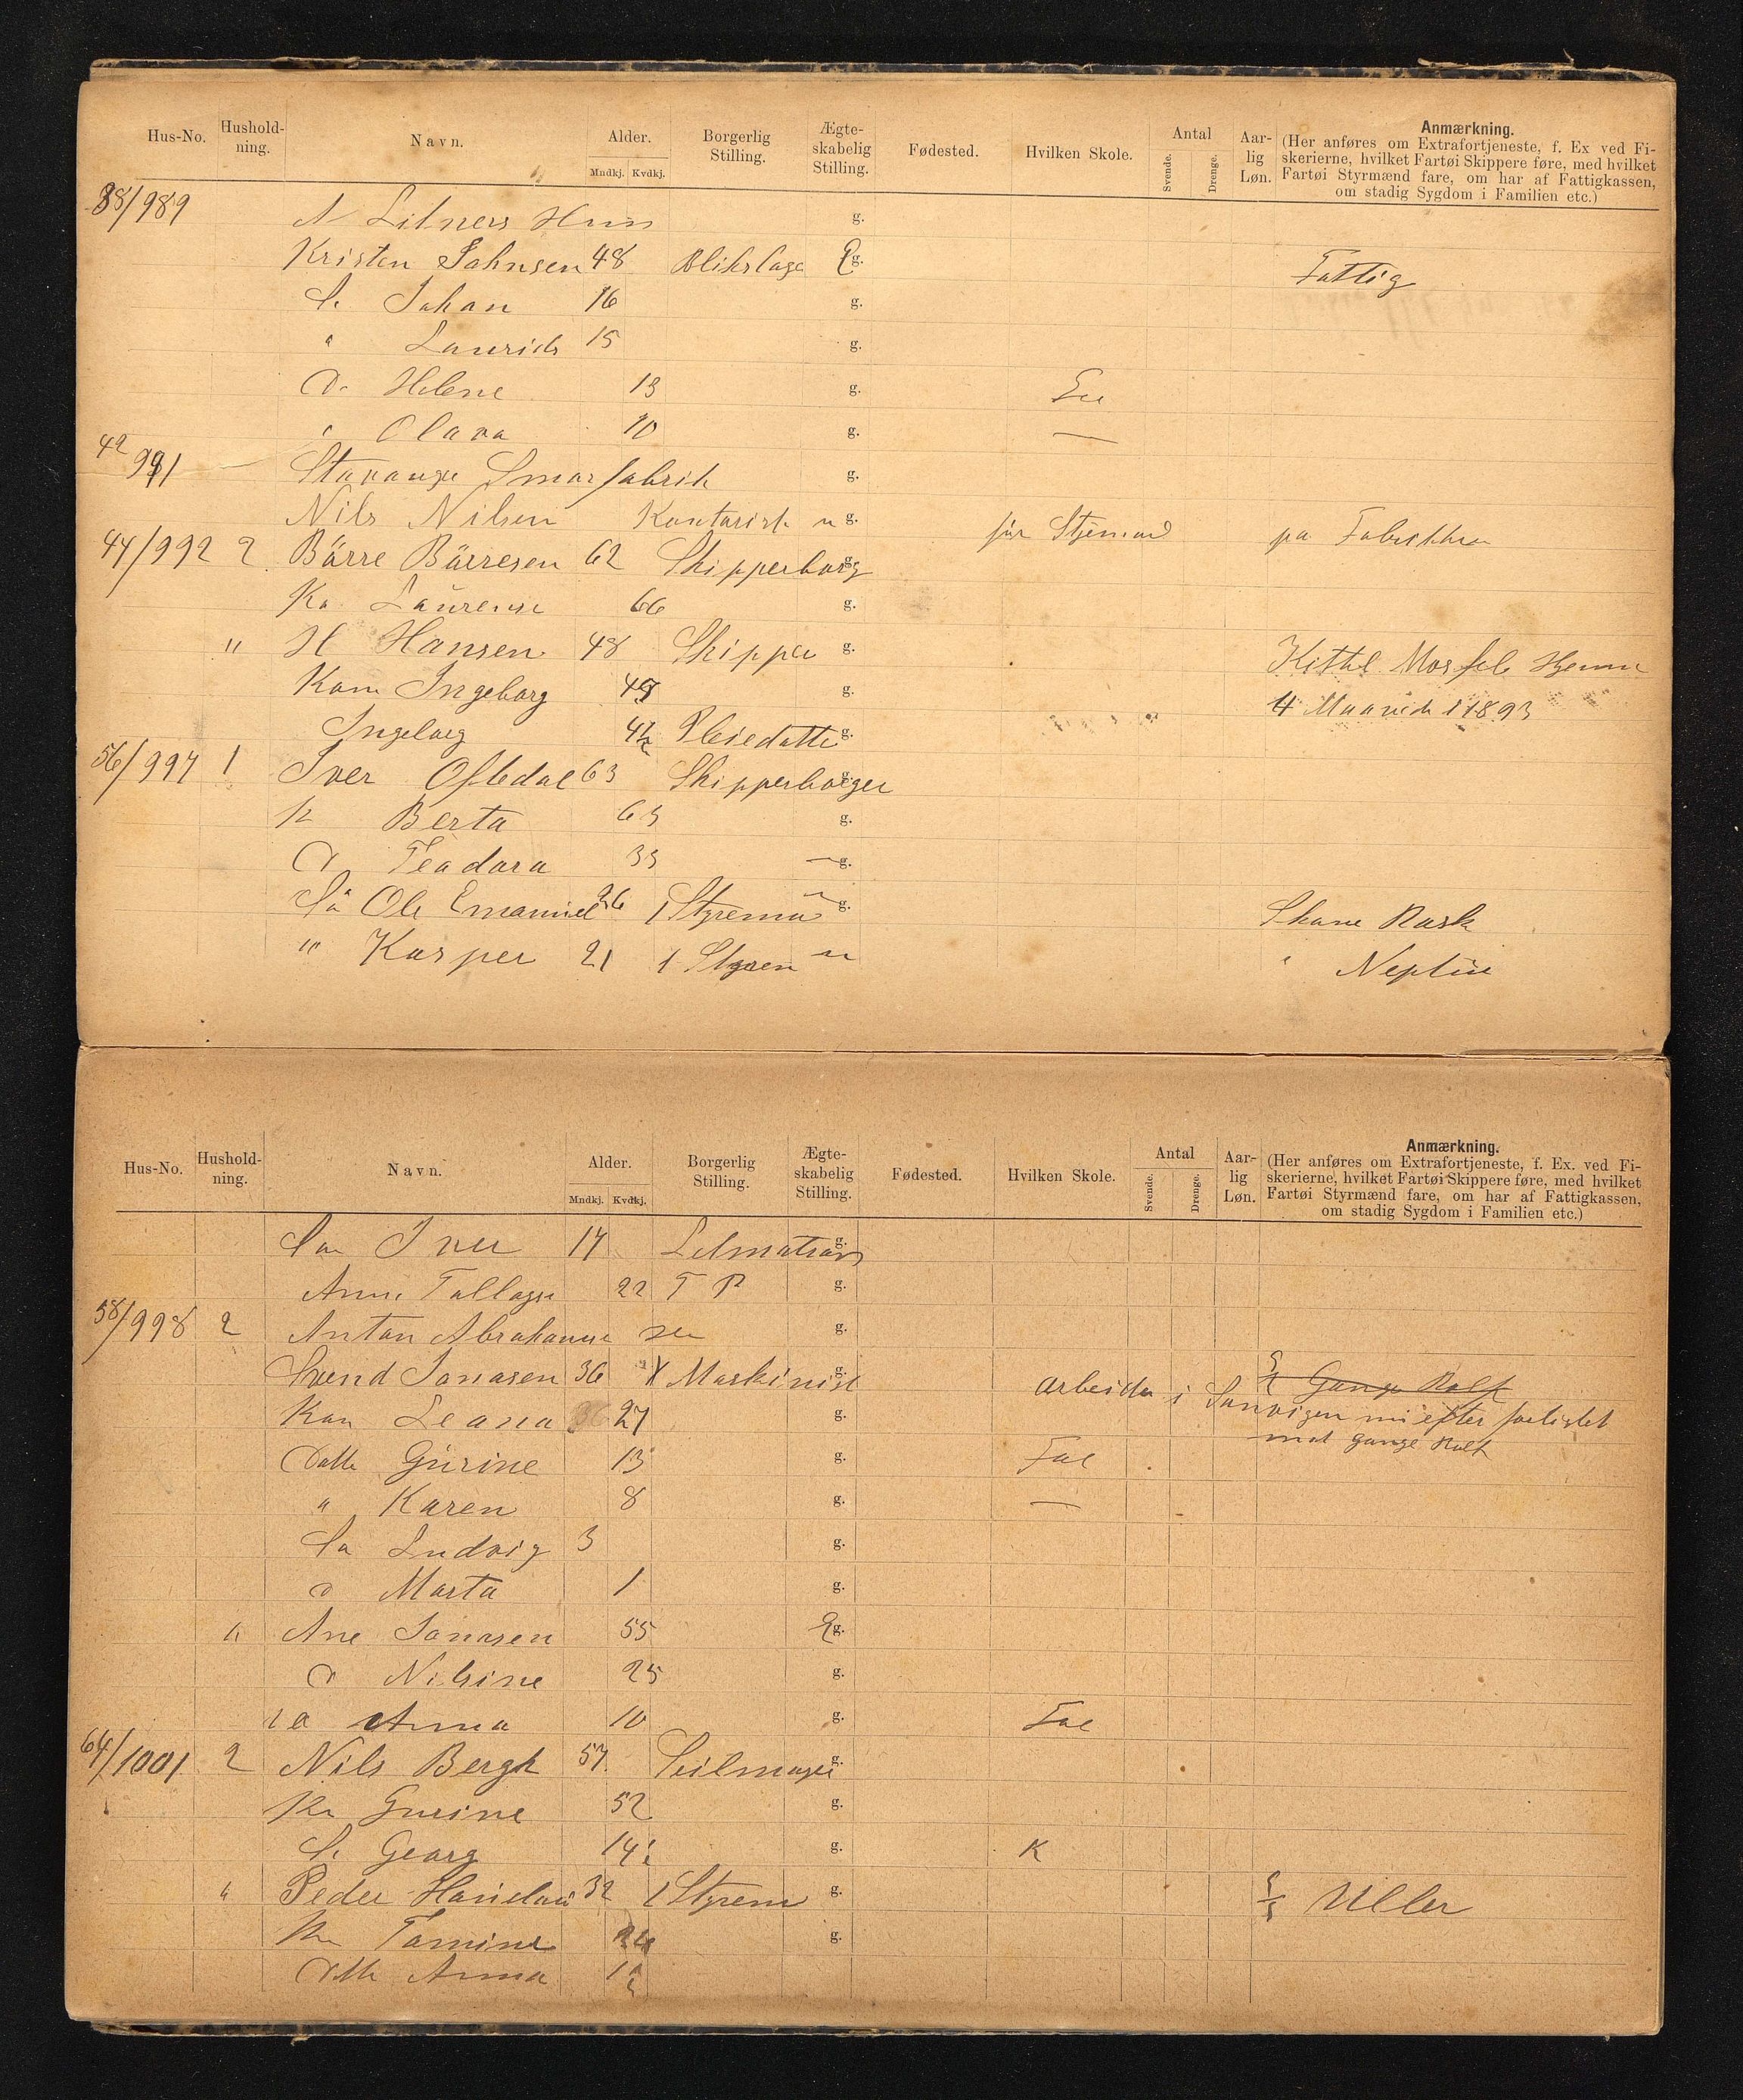 Hus-No. Hushold-ning. Navn. Alder. Mndkj. Kvdkj. Borgerlig Stilling. Ægte-skabelig Stilling. Fødested. Hvilken Skole. Antal Svende. Drenge. Aar-lig Løn. Anmærkning.
(Her anføres om Extrafortjeneste, f. Ex ved Fi-
skerierne, hvilket Fartøi Skippere føre, med hvilket
Fartøi Styrmænd fare, om har af Fattigkassen,
om stadig Sygdom i Familien etc.)
38/989 N Litners Hus g.
Kristen Johnsen 48 Blikslage E g. Fattig
S. Johan 16 g.
" Laurids 15 g.
D. Helene 13 g.
" Olava 10 g. —
42 991 — Stavange Smørfabrik g.
Nils Nilsen Kontorist u g. på Fabrikken
44/992 2 Börre Börresen 62 Skipperborg g.
Ko. Laurense 66 g.
" H Hansen 48 Skipper g. Kittel Hjemme
Kone Ingeborg 48 g. 4 i 1893
Ingeborg Pleiedatte g.
56/997 1 Iver Oftedal 63 Skipperborger g.
K Berta 63 g.
D Teadora 33 — g.
Sö Ole Emanuel 26 1 Styrema — g. Skone Rask
" Kasper 21 1 Styrem — " Neptun
Hus-No. Hushold-ning. Navn. Alder. Mndkj. Kvdkj. Borgerlig Stilling. Ægte-skabelig Stilling. Fødested. Hvilken Skole. Antal Svende. Drenge. Aar-lig Løn. Anmærkning.
(Her anføres om Extrafortjeneste, f. Ex. ved Fi-
skerierne, hvilket Fartøi Skippere føre, med hvilket
Fartøi Styrmænd fare, om har af Fattigkassen,
om stadig Sygdom i Familien etc.)
Sön Iver 17 Letmatros g.
Anne Tallagse 22 T P g.
58/998 2 Anton Abrahamsen g.
Svend Jonasen 36 Maskinist g. Gange Rolf
arbeider i Sanvigen nu efter forlistet
Kon Leana 27 g. mot Gange Rolf
Datte Gurine 13 g. Fol
" Karen 8 g. —
Sö Ludvig 3 g.
D Marta 1 g.
" Ane Jonasen 55 E g.
D Nilsine 25 g.
D Anna 10 g. Fol
64/1001 2 Nils Bergh 57 Seilmager g.
Ko Gurine 52 g.
S. Georg 14 g. K
" Peder 32 1 Styrem g. Uller
Ko Tomine g.
Dtte Anna